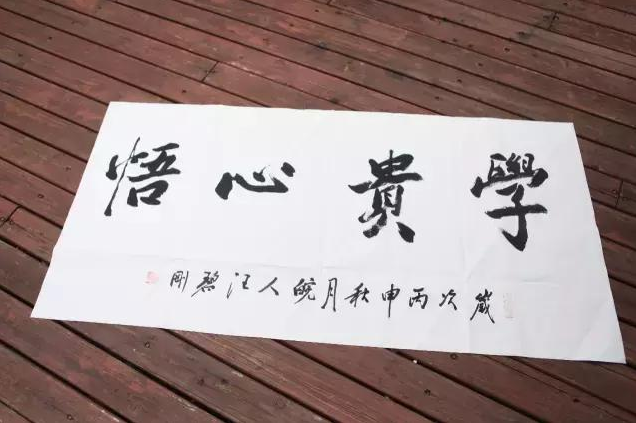 學貴心悟
歲次丙申秋月皖人汪碧剛